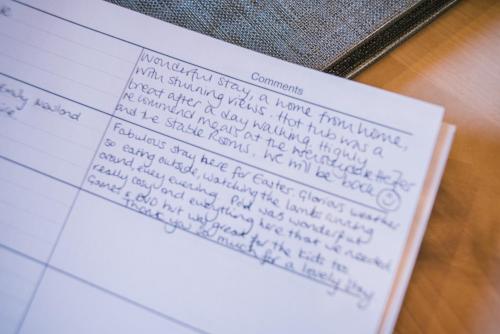 Comments
Wonderful stay, a home from home,
with stunning views. Hot tub was a
treat after a day walking. Highly
recommend meals at the
and the Stable Rooms. We will be back ☺
family
Fabulous stay here for Easter. Glorious weather
so eating outside, watching the lambs running
around, every evening. Pod was wonderful
really cosy and everything here that we needed.
Games & DVD but was great for the kids too.
Thank you so much for a lovely stay